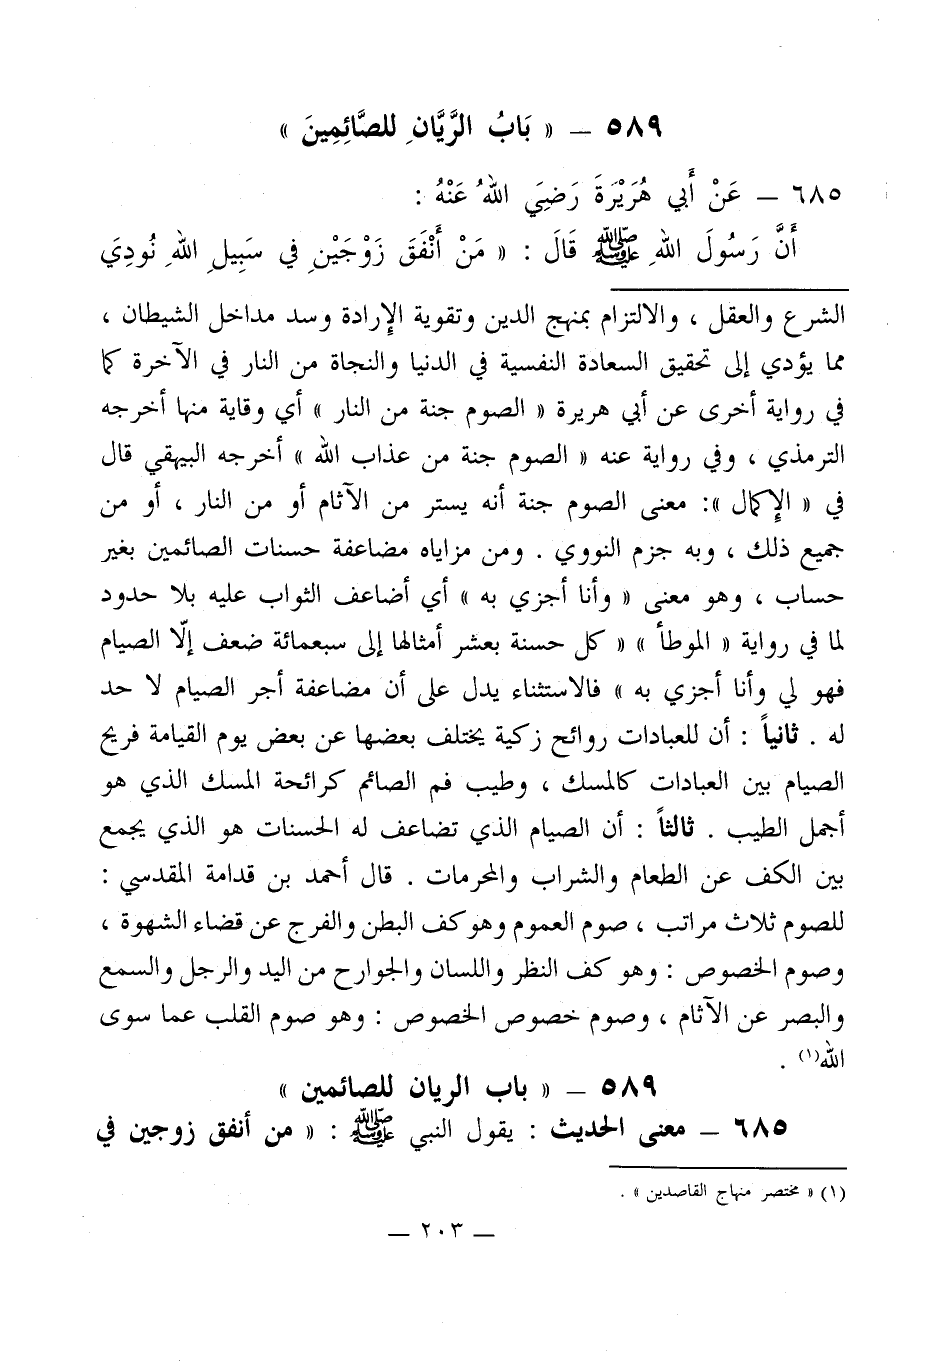 ٥٨٩ – « بَابُ الرَّيَّانِ للصَّائِمِينَ »
٦٨٥ – عَنْ أَبي هُرَيْرَةَ رَضِيَ اللهُ عَنْهُ :
أَنَّ رَسُولَ اللهِ ﷺ قَالَ : « مَنْ أَنْفَقَ زَوْجَيْنِ في سَبِيلِ اللهِ نُودِيَ
الشرع والعقل ، والالتزام بمنهج الدين وتقوية الإرادة وسد مداخل الشيطان ،
مما يؤدي إلى تحقيق السعادة النفسية في الدنيا والنجاة من النار في الآخرة كما
في رواية أخرى عن أبي هريرة « الصوم جنة من النار » أي وقاية منها أخرجه
الترمذي ، وفي رواية عنه « الصوم جنة من عذاب الله » أخرجه البيهقي قال
في « الإكمال »: معنى الصوم جنة أنه يستر من الآثام أو من النار ، أو من
جميع ذلك ، وبه جزم النووي . ومن مزاياه مضاعفة حسنات الصائمين بغير
حساب ، وهو معنى « وأنا أجزي به » أي أضاعف الثواب عليه بلا حدود
لما في رواية « الموطأ » « كل حسنة بعشر أمثالها إلى سبعمائة ضعف إلّا الصيام
فهو لي وأنا أجزي به » فالاستثناء يدل على أن مضاعفة أجر الصيام لا حد
له . ثانياً : أن للعبادات روائح زكية يختلف بعضها عن بعض يوم القيامة فريح
الصيام بين العبادات كالمسك ، وطيب فم الصائم كرائحة المسك الذي هو
أجمل الطيب . ثالثاً : أن الصيام الذي تضاعف له الحسنات هو الذي يجمع
بين الكف عن الطعام والشراب والمحرمات . قال أحمد بن قدامة المقدسي :
للصوم ثلاث مراتب ، صوم العموم وهو كف البطن والفرج عن قضاء الشهوة ،
وصوم الخصوص : وهو كف النظر واللسان والجوارح من اليد والرجل والسمع
والبصر عن الآثام ، وصوم خصوص الخصوص : وهو صوم القلب عما سوى
الله(١) .
٥٨٩ – « باب الريان للصائمين »
٦٨٥ – معنى الحديث : يقول النبي ﷺ : « من أنفق زوجين في
(١) « مختصر منهاج القاصدين » .
– ٢٠٣ –